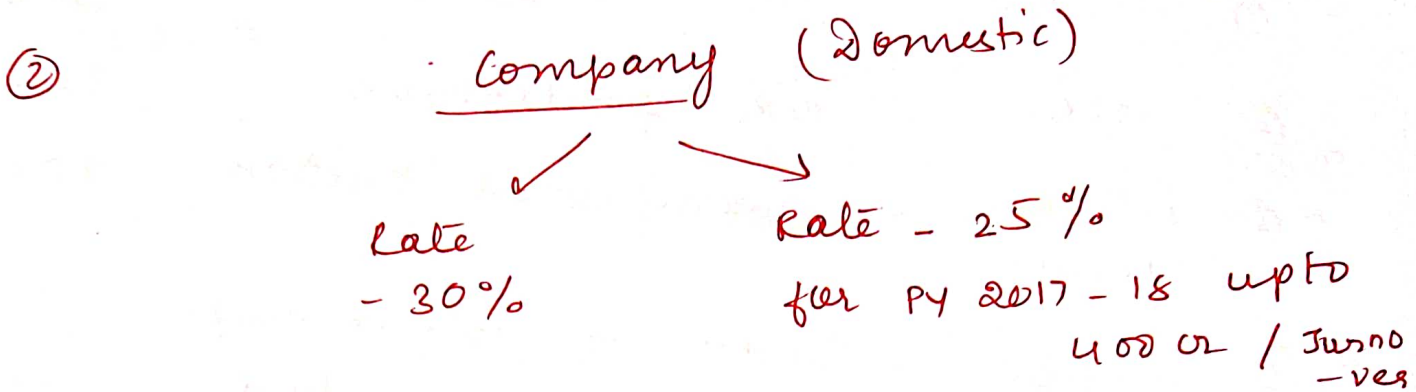 ②
Company (Domestic)
Rate
- 30%
Rate - 25%
for PY 2017-18 upto
400 cr / Turno
-ver